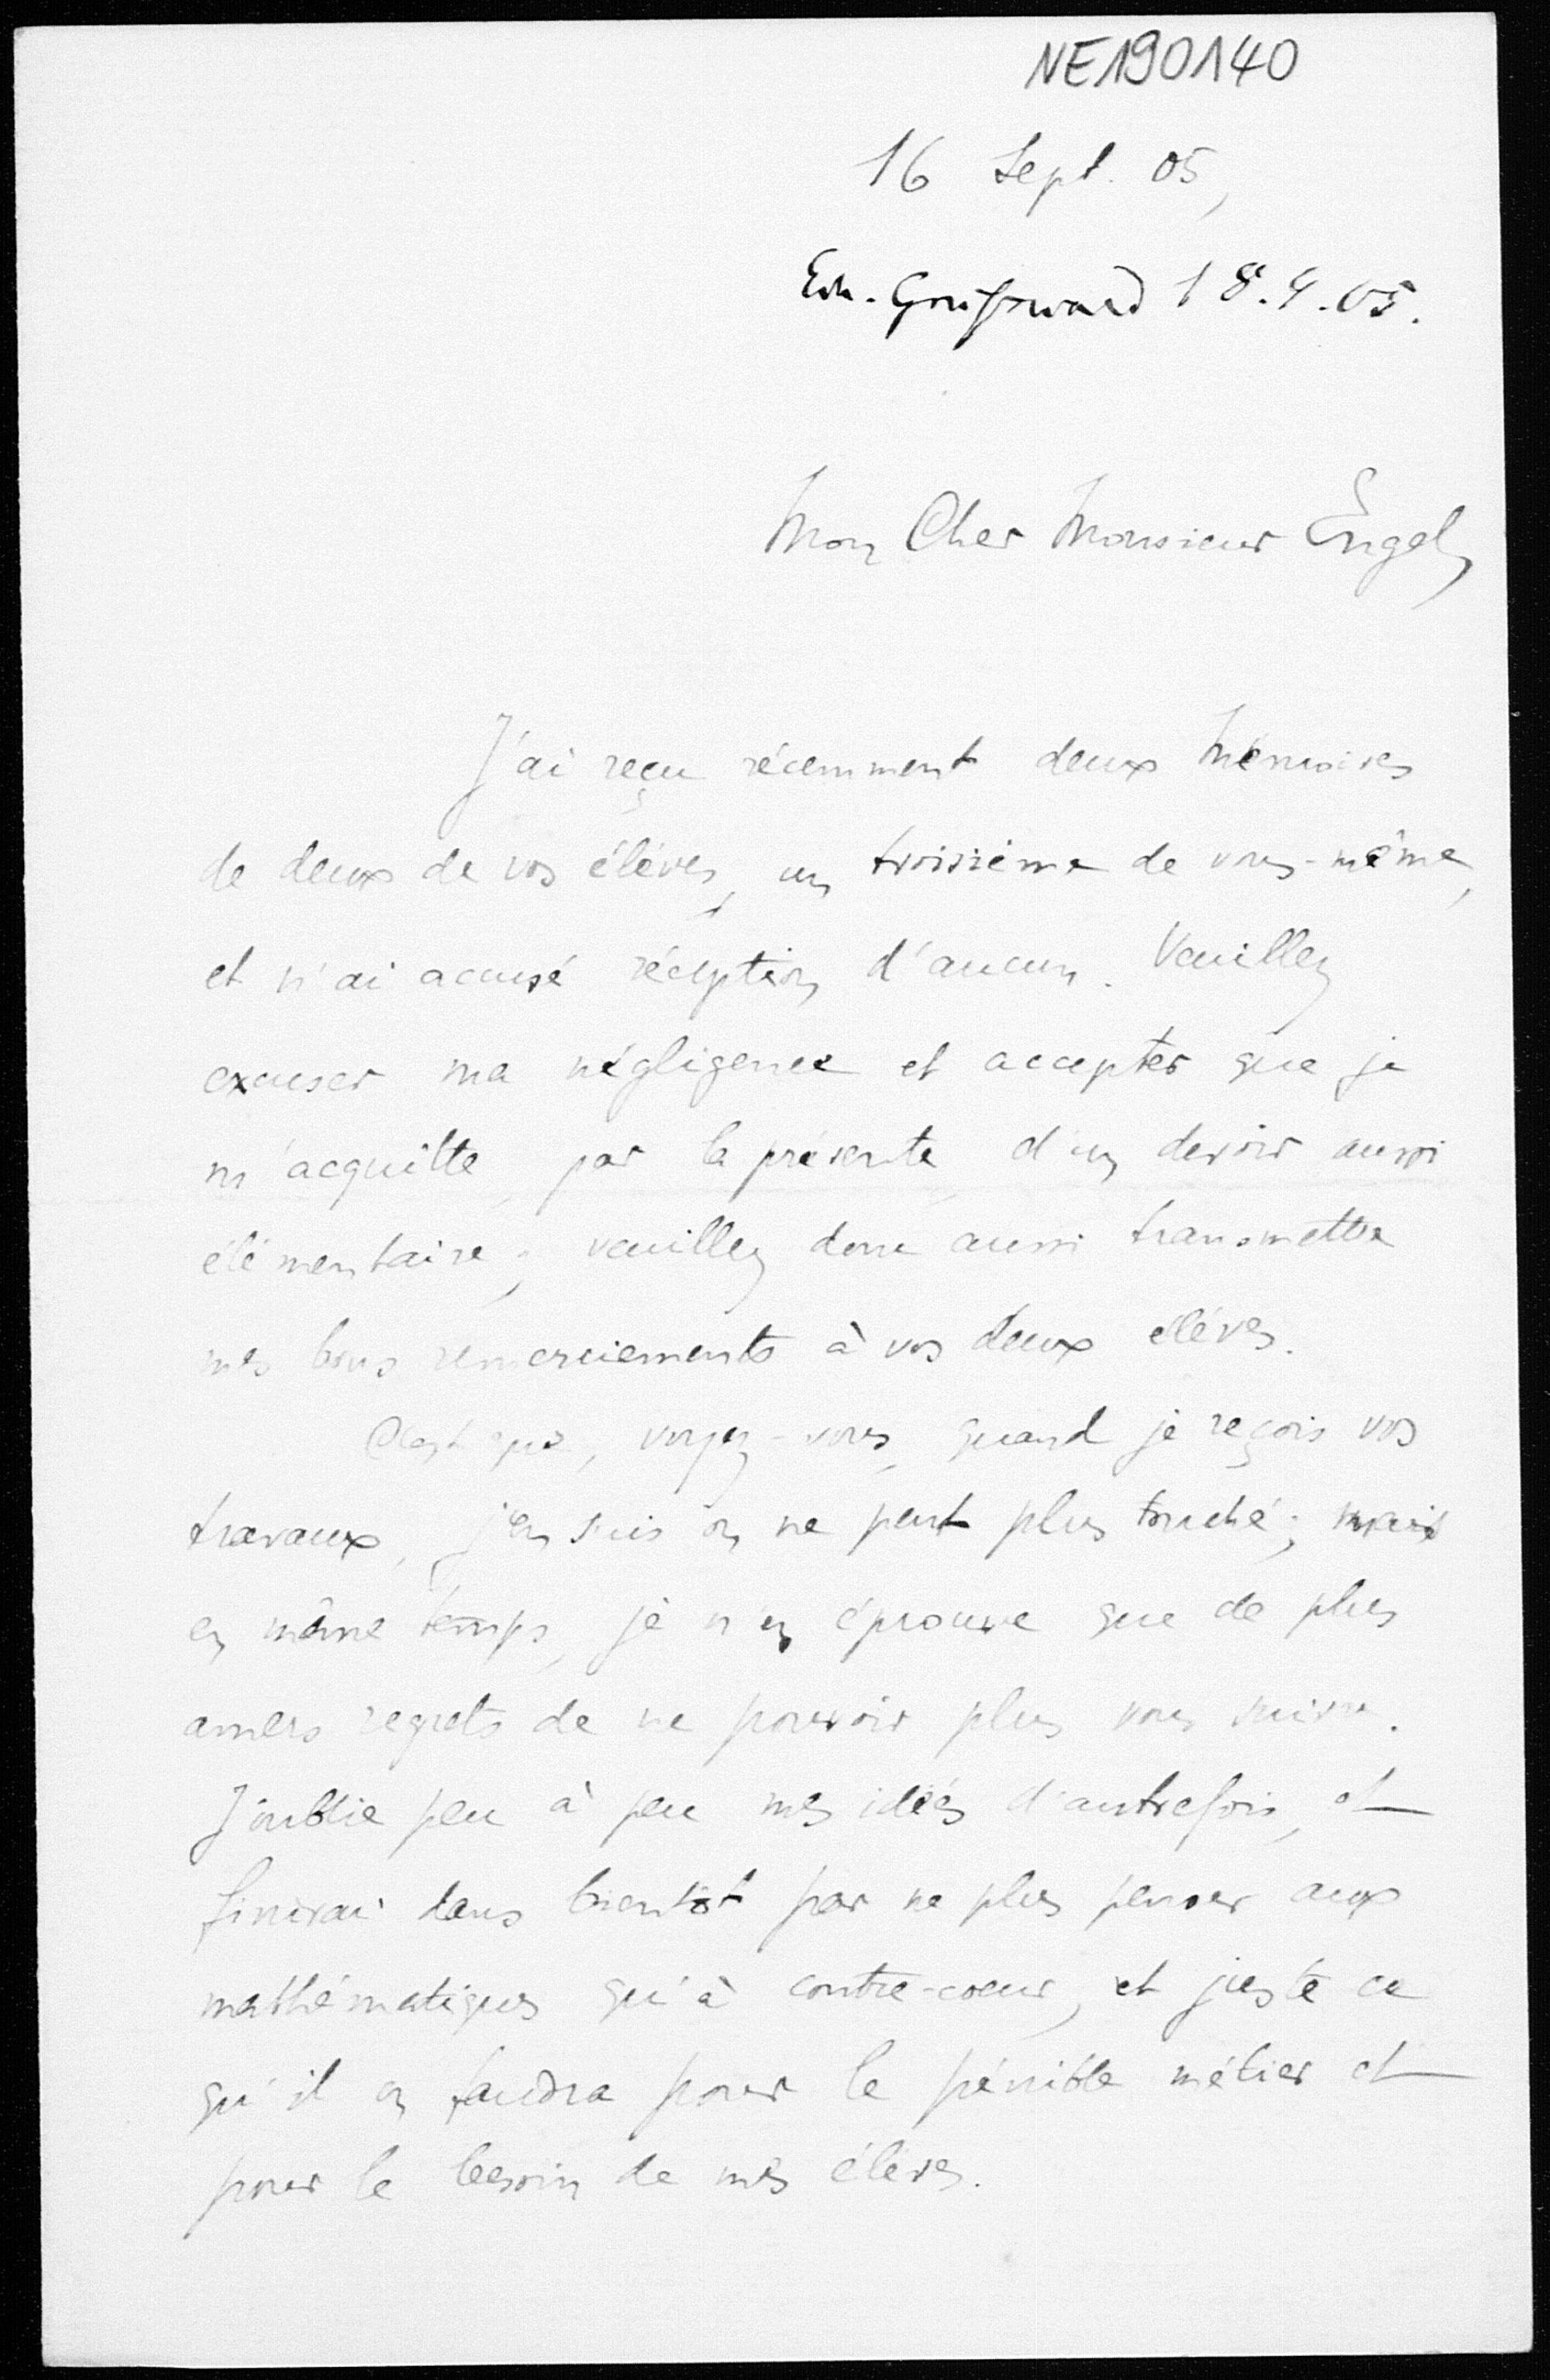 NE190140
16 Sept. 05,
Erh. Greifswald 18.9.05.
Mon Cher Monsieur Engel,
J'ai reçu récemment deux Mémoires
de deux de vos élèves, un troisième de vous-même,
et n'ai accusé réception d'aucun. Veuillez
excuser ma négligence et accepter que je
m'acquitte, par la présente, d'un devoir aussi
élémentaire; veuillez donc aussi transmettre
mes bons remerciements à vos deux élèves.
C'est que, voyez-vous, quand je reçois vos
travaux, j'en suis on ne peut plus touché; mais
en même temps, je n'en éprouve que de plus
amers regrets de ne pouvoir plus vous suivre.
J'oublie peu à peu mes idées d'autrefois, et
finirai dans bientôt par ne plus penser aux
mathématiques qu'à contre-coeur, et juste ce
qu'il en faudra pour le pénible métier et
pour le besoin de mes élèves.